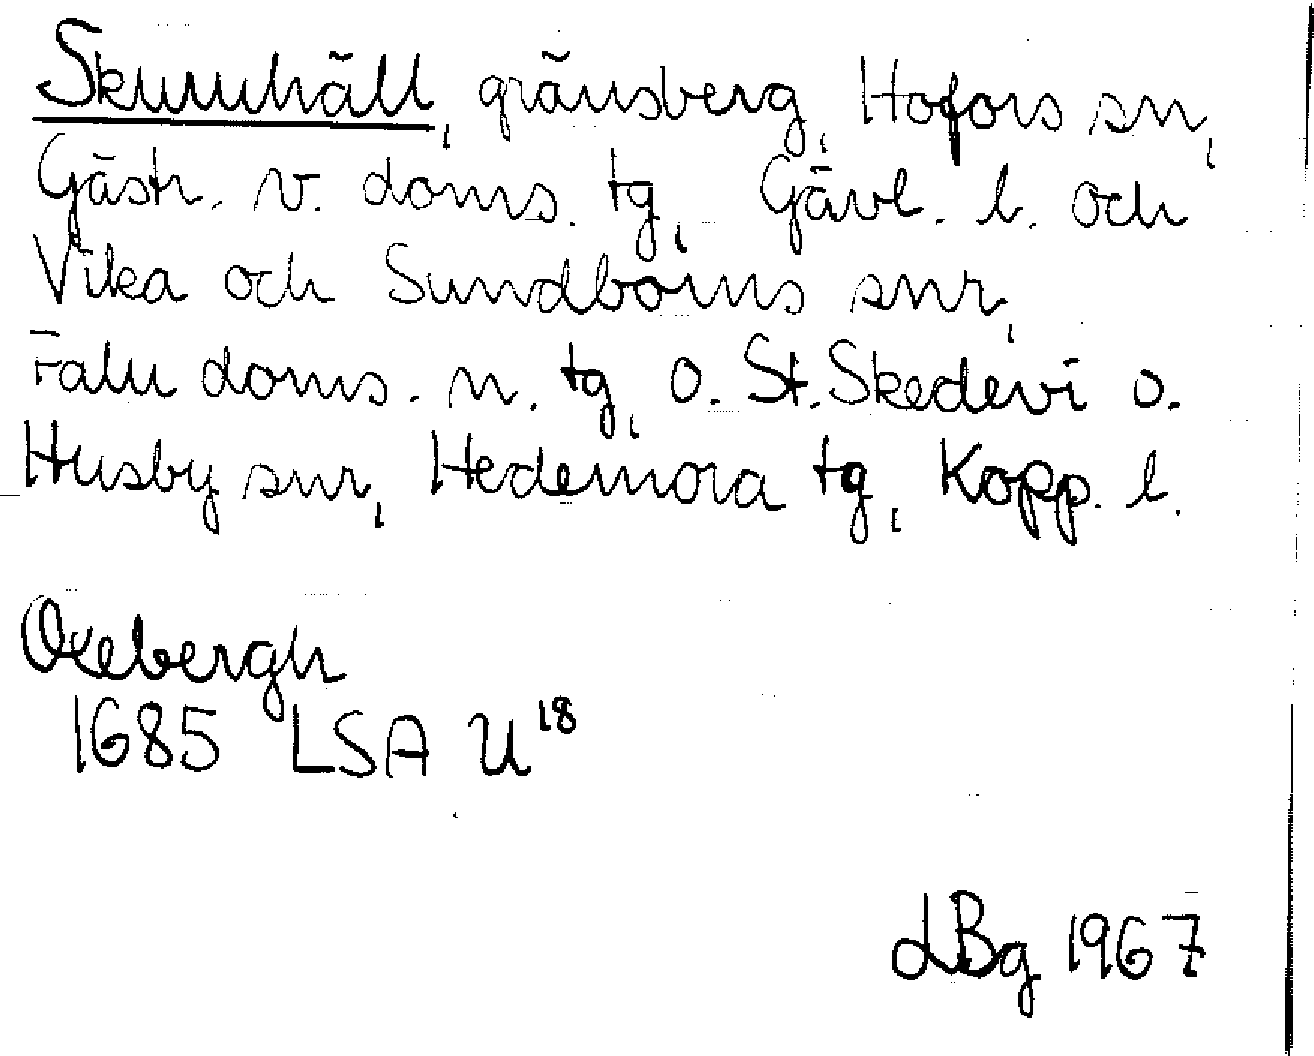 Skumhäll, gränsberg, Hofors sn,
Gästr. v. doms. tg, Gävl. l. och
Vika och Sundborns snr,
Falu doms. n. tg, o. St. Skedevi o.
Husby snr, Hedemora tg, Kopp. l.
Oxebergh
1685 LSA U18
LBg 1967